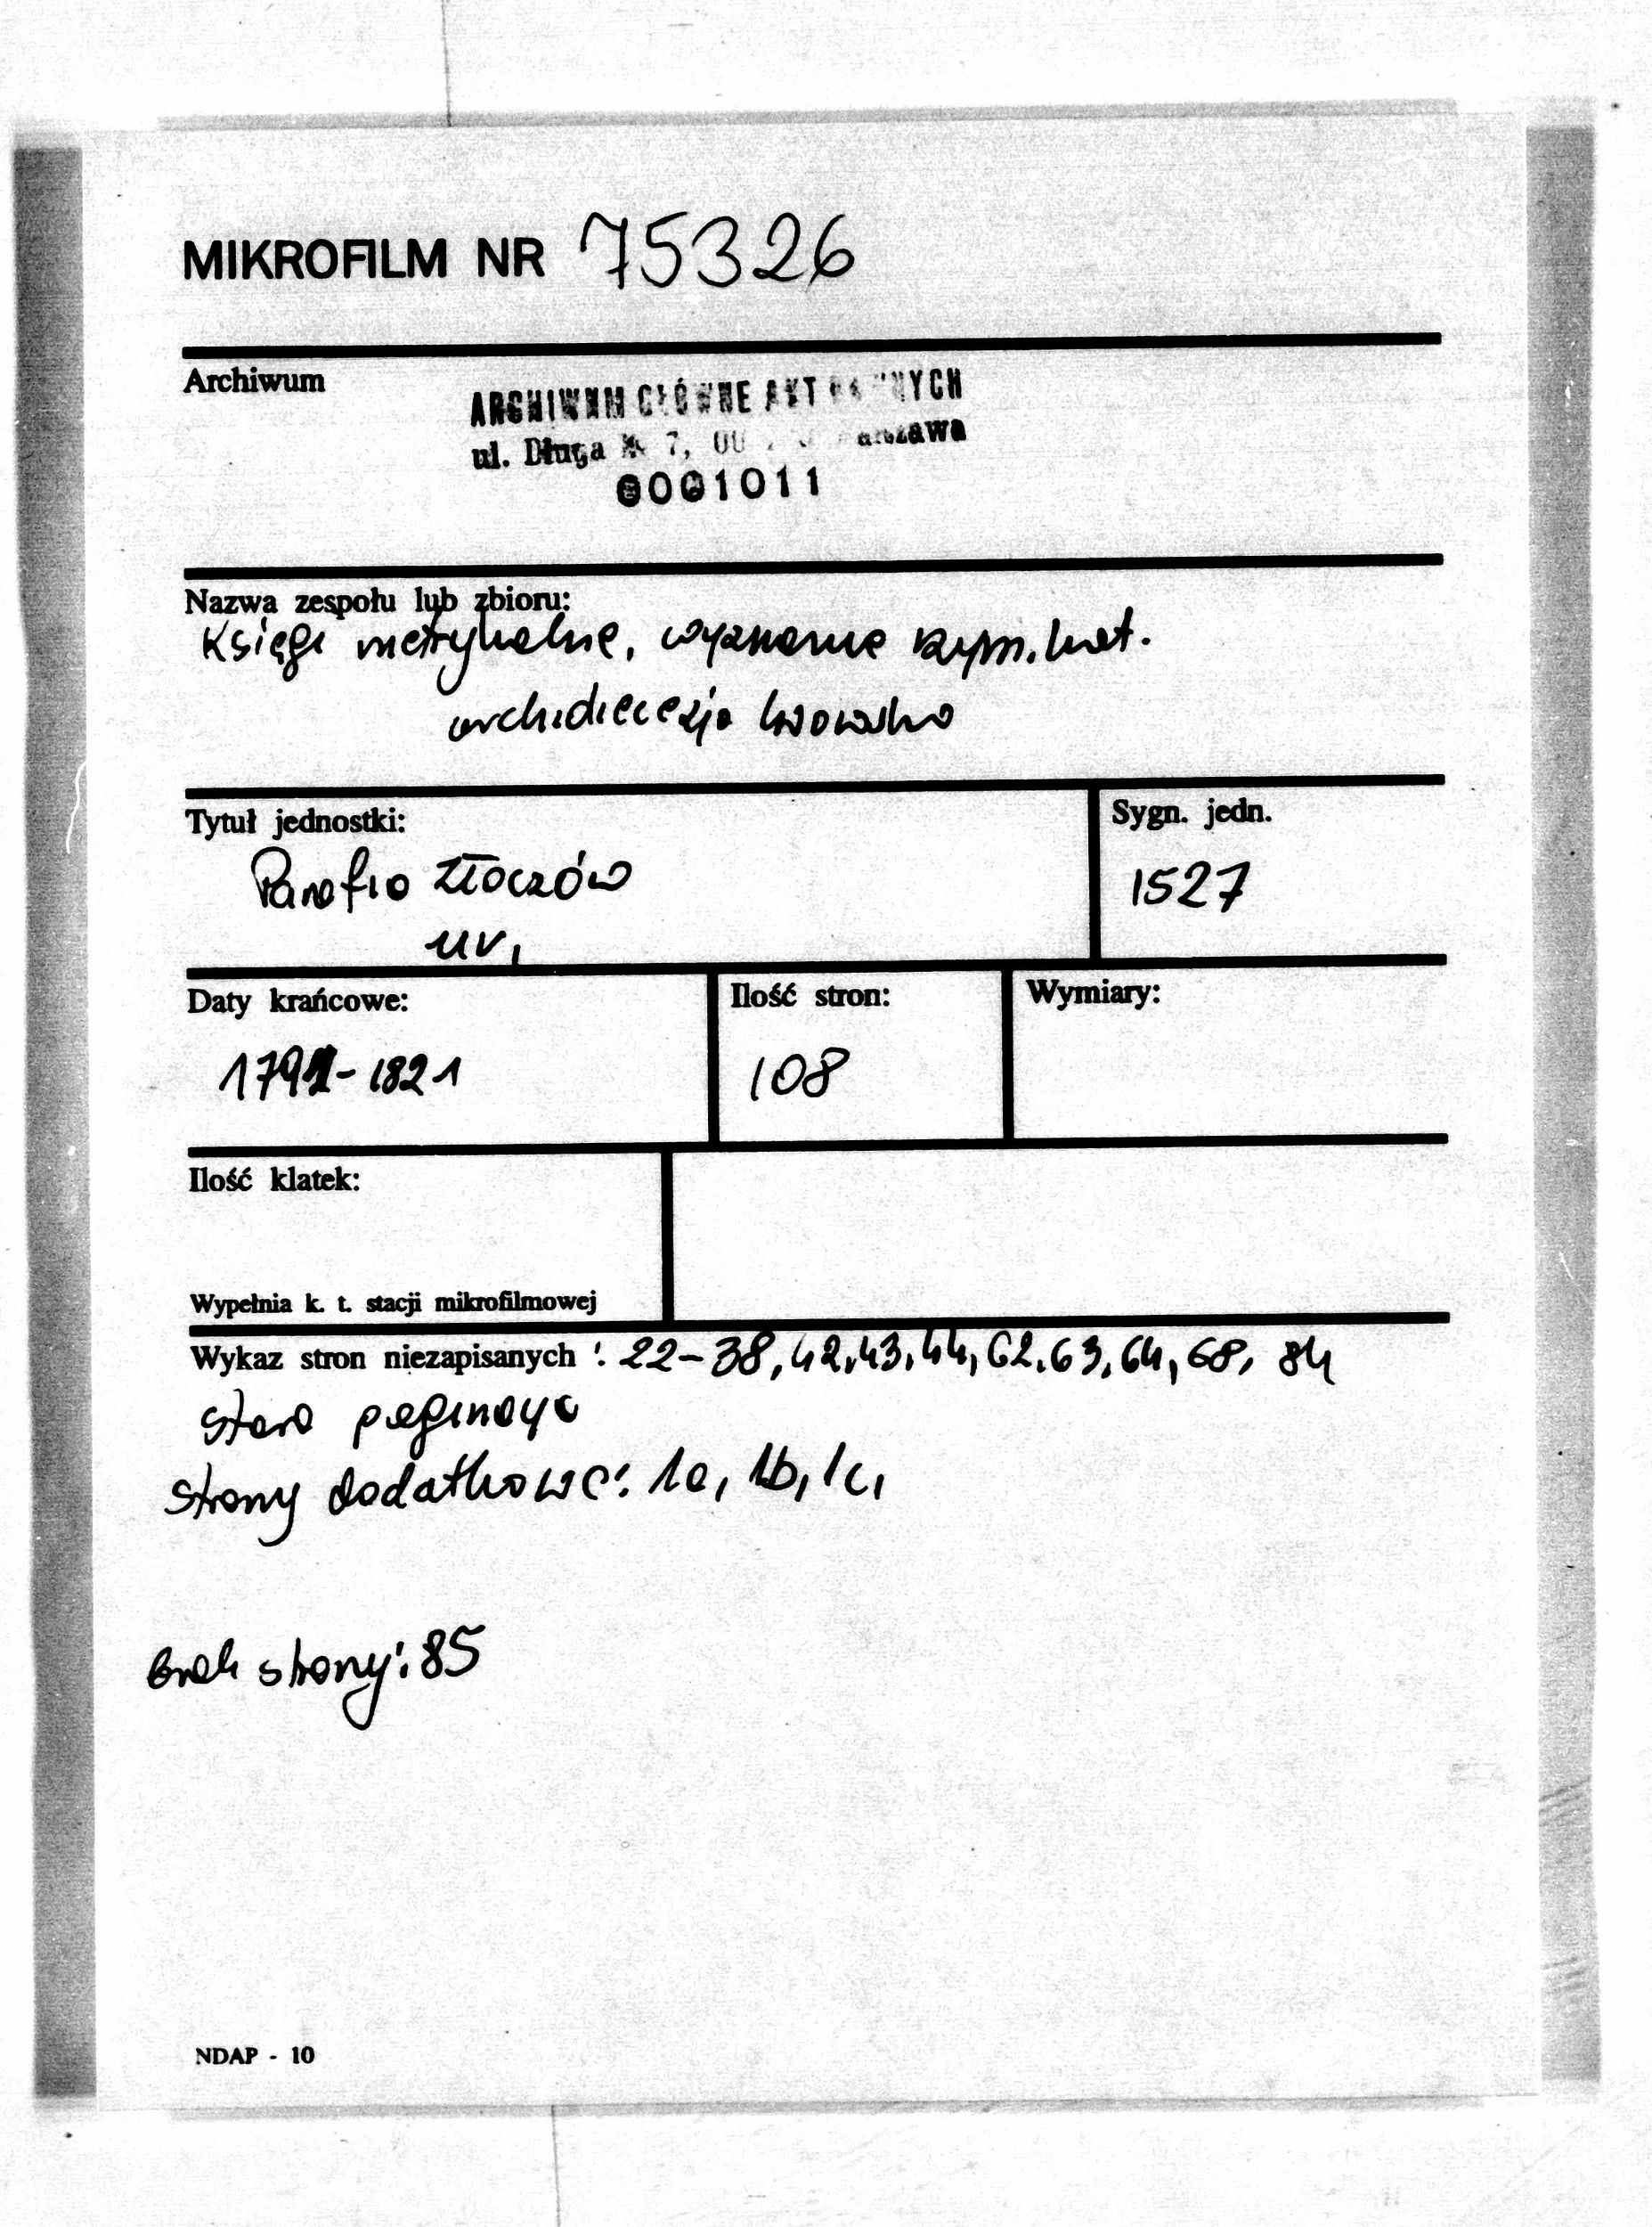 MIKROFILM NR 75326
Archiwum
ARCHIWUM GŁÓWNE AKT
ul. Długa 7, 00 Warszawa
0001011
Nazwa zespołu lub zbioru:
Księgi metrykalne, wyznanie rzym. kat.
archidiecezja lwowska
Tytuł jednostki:
Sygn. jedn.
Parafia Złoczów
1527
Daty krańcowe:
Ilość stron:
Wymiary:
1791-1821
108
Ilość klatek:
Wypełnia k. t. stacji mikrofilmowej
Wykaz stron niezapisanych : 22-38, 42, 43, 44, 62, 63, 64, 68, 84
Stara paginacja
Strony dodatkowe: 1a, 1b, 1c,
Brak strony: 85
NDAP - 10